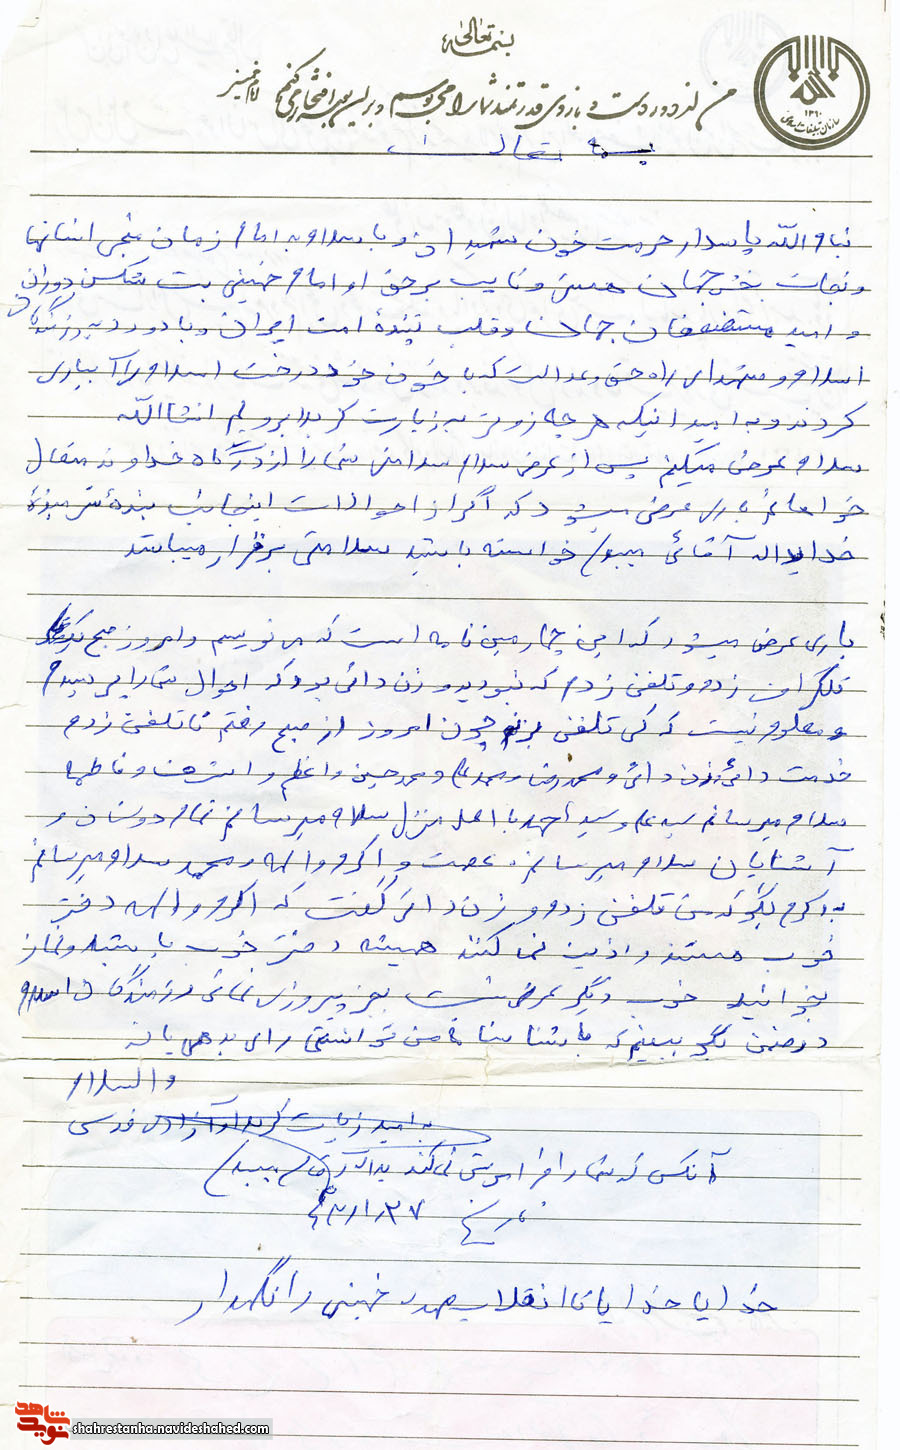 بسمه تعالی
من از دور دست و بازوی قدرتمند شما را می‌بوسم و بر این بوسه افتخار می‌کنم امام خمینی
۱۳۶۰
سازمان تبلیغات اسلامی
بسمه تعالی
بنام الله پاسدار حرمت خون شهیدان و با سلام به امام زمان منجی انسانها
و نجات بخش جهان هستی و نایب برحق او امام خمینی بت شکن دوران
و امید مستضعفان جهان و قلب تپندهٔ امت ایران و با درود به رزمندگان
اسلام و شهدای راه حق و عدالت که با خون خود درخت اسلام را آبیاری
کردند و به امید اینکه هر چه زودتر به زیارت کربلا برویم انشاالله
سلام عرض میکنم پس از عرض سلام سلامتی شما را از درگاه خداوند متعال
خواهانم باری عرض میشود که اگر از احوالات اینجانب بندهٔ شرمندهٔ
خدا یداله آقائی میبدی خواسته باشید سلامتی برقرار میباشد
باری عرض میشود که این چهارمین نامه است که می نویسم و امروز صبح
تلگراف زدم و تلفنی زدم که نبودید و زن دائی بود که احوال شما را پرسیدم
و معلوم نیست که کی تلفنی بزنم چون امروز از صبح رفتم تا تلفن زدم
خدمت دائی و زن دائی و محمدرضا و محمدعلی و محمدحسین و اعظم و اشرف و فاطمه
سلام میرسانم سید علی و سید احمد با اهل منزل سلام میرسانم تمام دوستان و
آشنایان سلام میرسانم. عصمت و اکرم و الهه و محمد سلام میرسانم
به اکرم بگو که من تلفنی زدم و زن دائی گفت که اکرم و الهه دختر
خوب هستند و اذیت نمی کنند همیشه دختر خوب باشید و نماز
بخوانید خوب دیگر عرضی نیست بجز پیروزی نهائی رزمندگان اسلام
در ضمن بگو ببینم که شناسنامه من توانستی رای بدهی یا نه
والسلام
به امید زیارت کربلا و آزادی قدس
آنکس که شما را فراموش نمی کند یداله آقائی میبدی
تاریخ ۶۳/۱/۲۷
خدایا خدایا تا انقلاب مهدی خمینی را نگهدار
نوید شاهد
shahrestanha.navideshahed.com